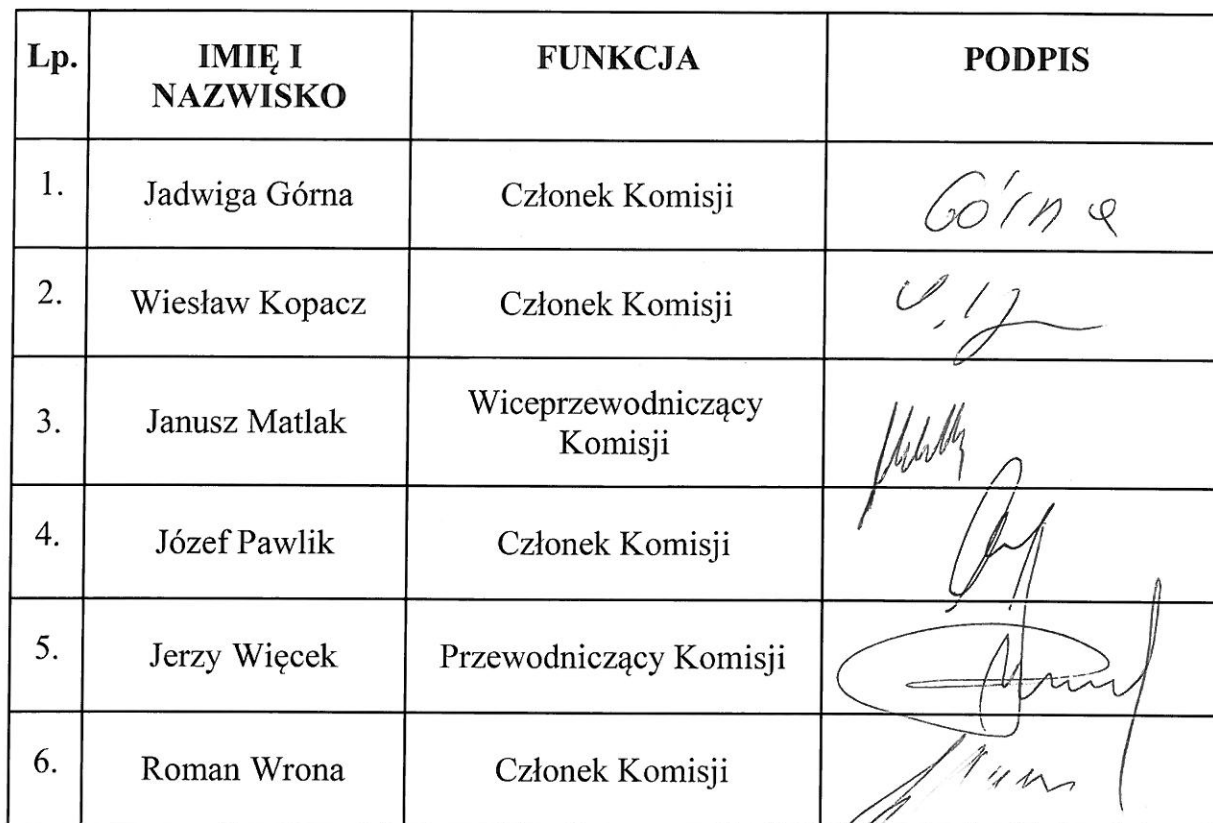 Lp.
IMIĘ I
NAZWISKO
FUNKCJA
PODPIS
1.
Jadwiga Górna
Członek Komisji
Górna
2.
Wiesław Kopacz
Członek Komisji
3.
Janusz Matlak
Wiceprzewodniczący
Komisji
4.
Józef Pawlik
Członek Komisji
5.
Jerzy Więcek
Przewodniczący Komisji
6.
Roman Wrona
Członek Komisji